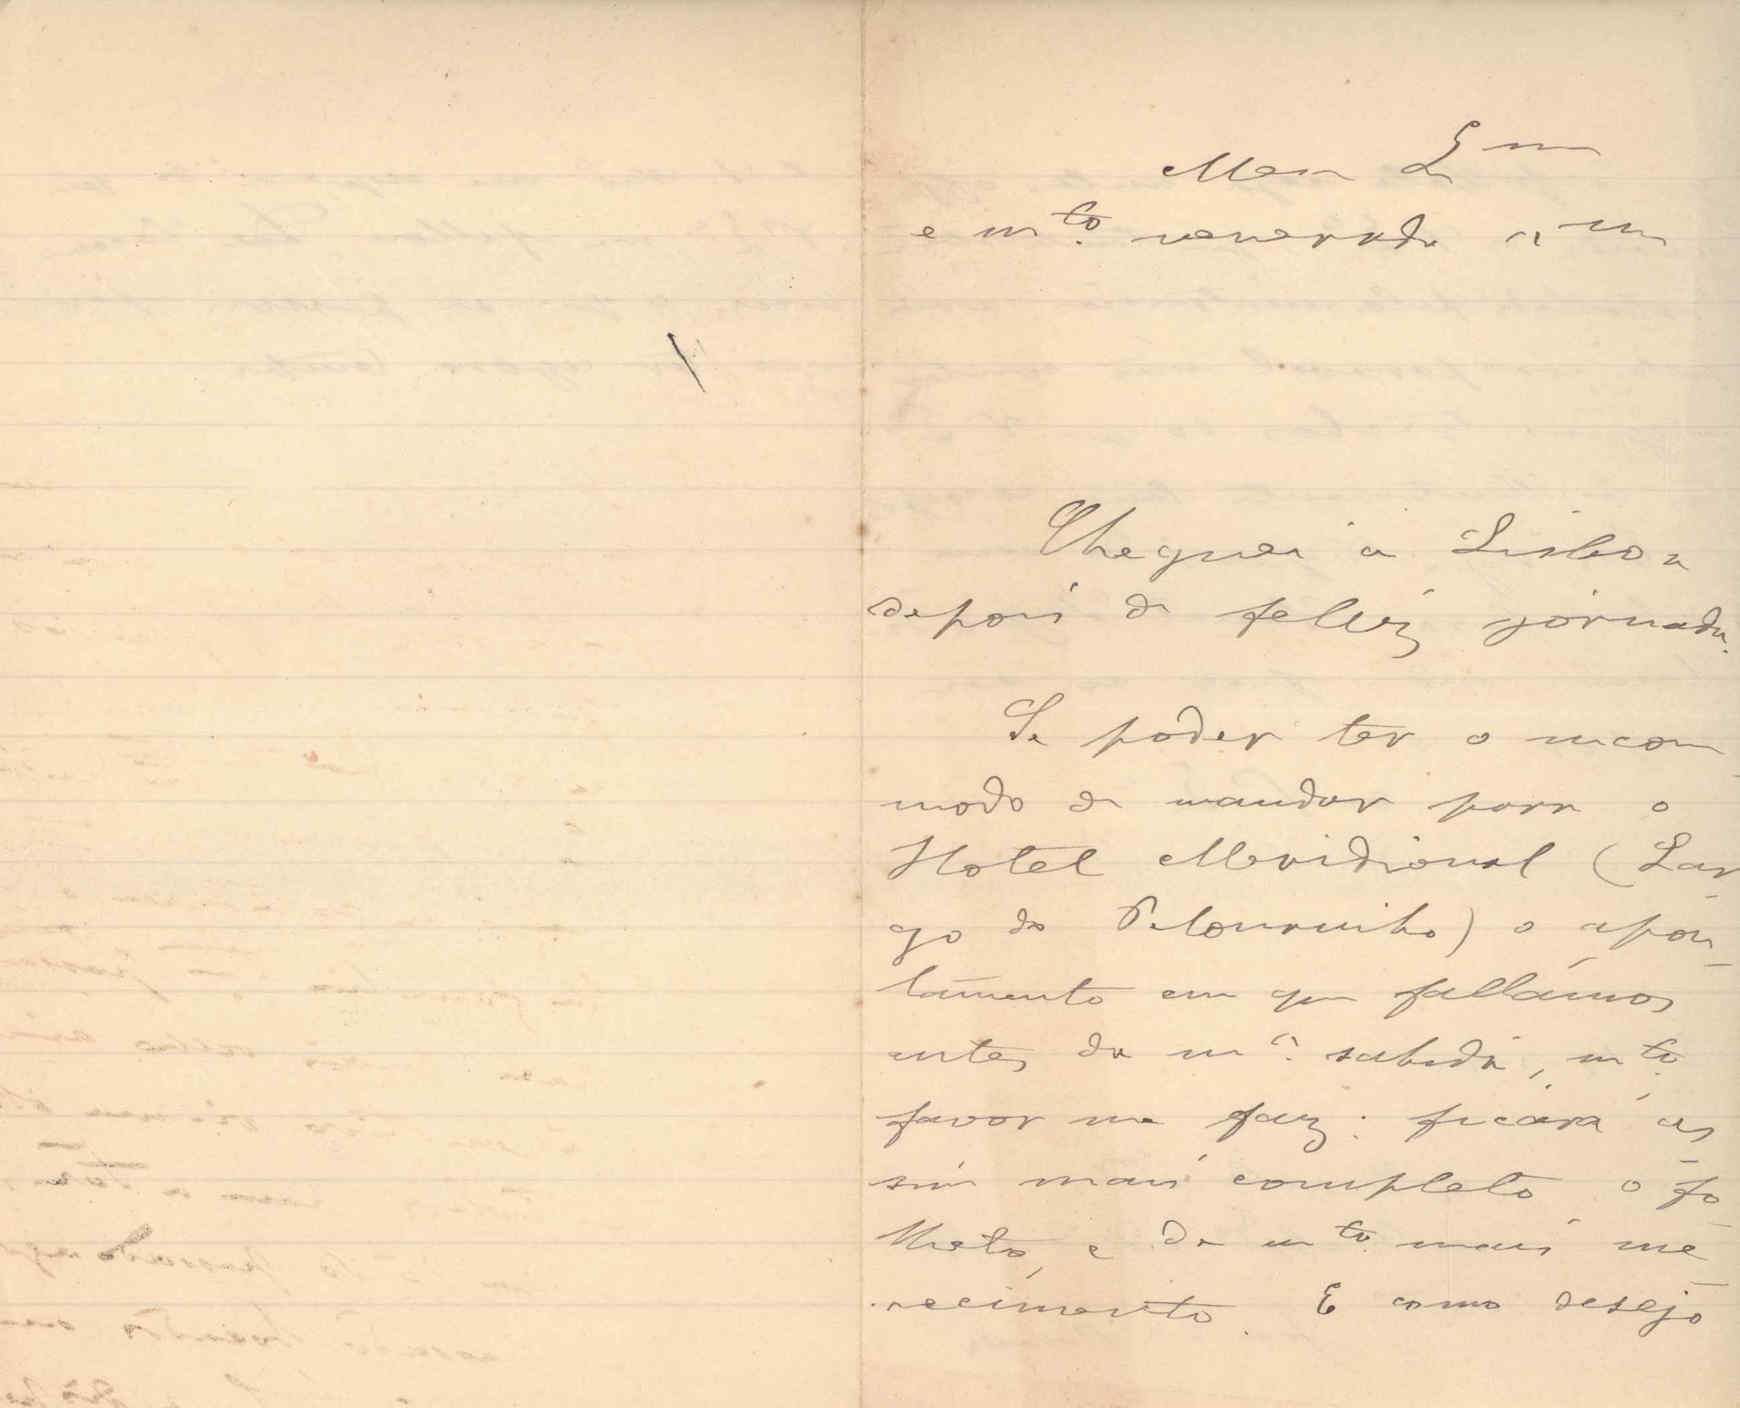 Meu Exmo
e mto. venerado am
Cheguei a Lisboa
depois de feliz jornada.
Se poder ter o incom-
modo de mandar para o
Hotel Meridional (Lar-
go do Pelourinho) o apon-
tamento em que fallámos
antes da ma. sahida, mto.
favor me faz: ficará as-
sim mais completo o fo-
lheto, e de mto. mais me-
recimento. E como desejo